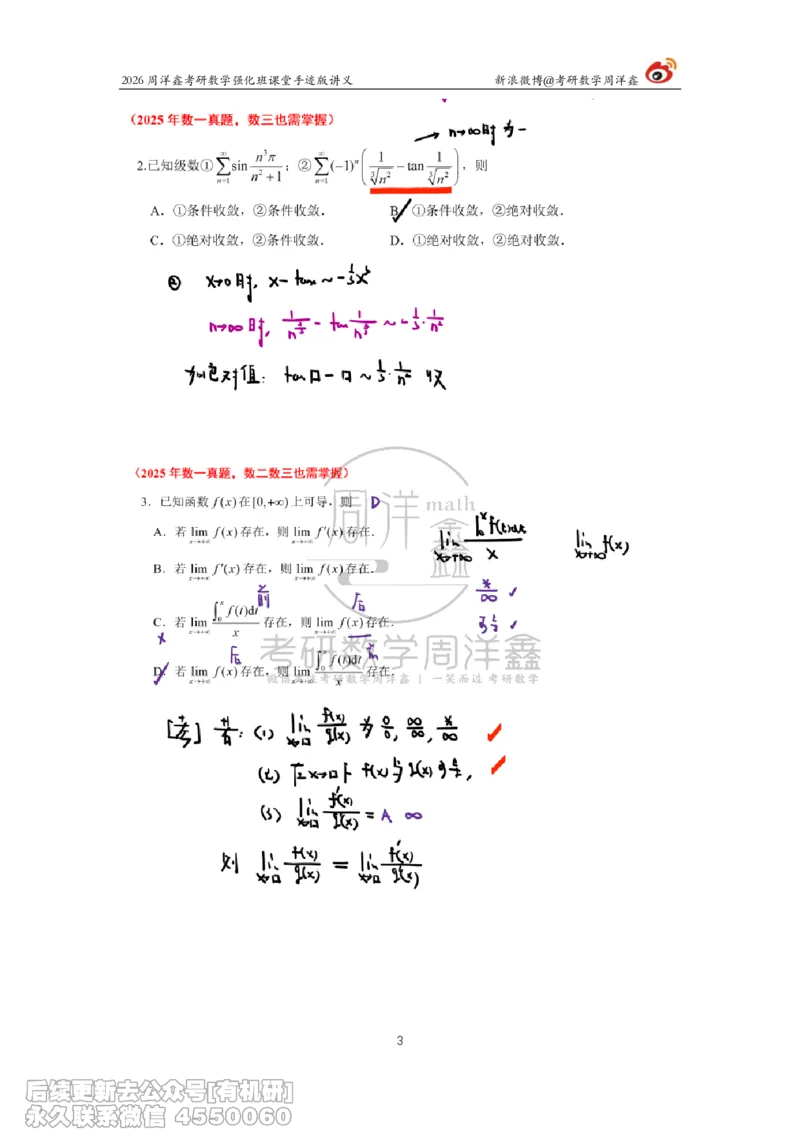 2026 周洋鑫考研数学强化班课堂手迹版讲义 新浪微博@考研数学周洋鑫
（2025 年数一真题，数三也需掌握）
→ n→∞时 为−
2.已知级数① ∑_{n=1}^{∞} sin n³π/(n²+1)；② ∑_{n=1}^{∞} (−1)ⁿ (1/∛n² − tan 1/∛n²)，则
A．①条件收敛，②条件收敛． B．①条件收敛，②绝对收敛．
C．①绝对收敛，②条件收敛． D．①绝对收敛，②绝对收敛．
② x→0时，x−tanx ~ −1/3 x³
n→∞时，1/n^{2/3} − tan 1/n^{2/3} ~ −1/3·1/n²
加绝对值：tan□−□ ~ 1/3·1/n² 收
（2025 年数一真题，数二数三也需掌握）
3．已知函数 f(x) 在[0,+∞) 上可导，则 D
A．若 lim_{x→+∞} f(x) 存在，则 lim_{x→+∞} f′(x) 存在．
lim_{x→+∞} ∫₀ˣ f(t)dt / x lim_{x→+∞} f(x)
B．若 lim_{x→+∞} f′(x) 存在，则 lim_{x→+∞} f(x) 存在．
前 后 *⁄∞ ✓
C．若 lim_{x→+∞} ∫₀ˣ f(t)dt / x 存在，则 lim_{x→+∞} f(x) 存在．
可导 ✓
后
D．若 lim_{x→+∞} f(x) 存在，则 lim_{x→+∞} ∫₀ˣ f(t)dt / x 存在．
周洋鑫 math
考研数学周洋鑫
微博关注考研数学周洋鑫 | 一笑而过 考研数学
若：(1) lim_{x→□} f(x)/g(x) 为 0/0, ∞/∞, */∞ ✓
(2) 在x→□下 f(x)与g(x)可导， ✓
(3) lim_{x→□} f′(x)/g′(x) = A ∞
则 lim_{x→□} f(x)/g(x) = lim_{x→□} f′(x)/g′(x)
3
后续更新去公众号[有机研]
永久联系微信 4550060